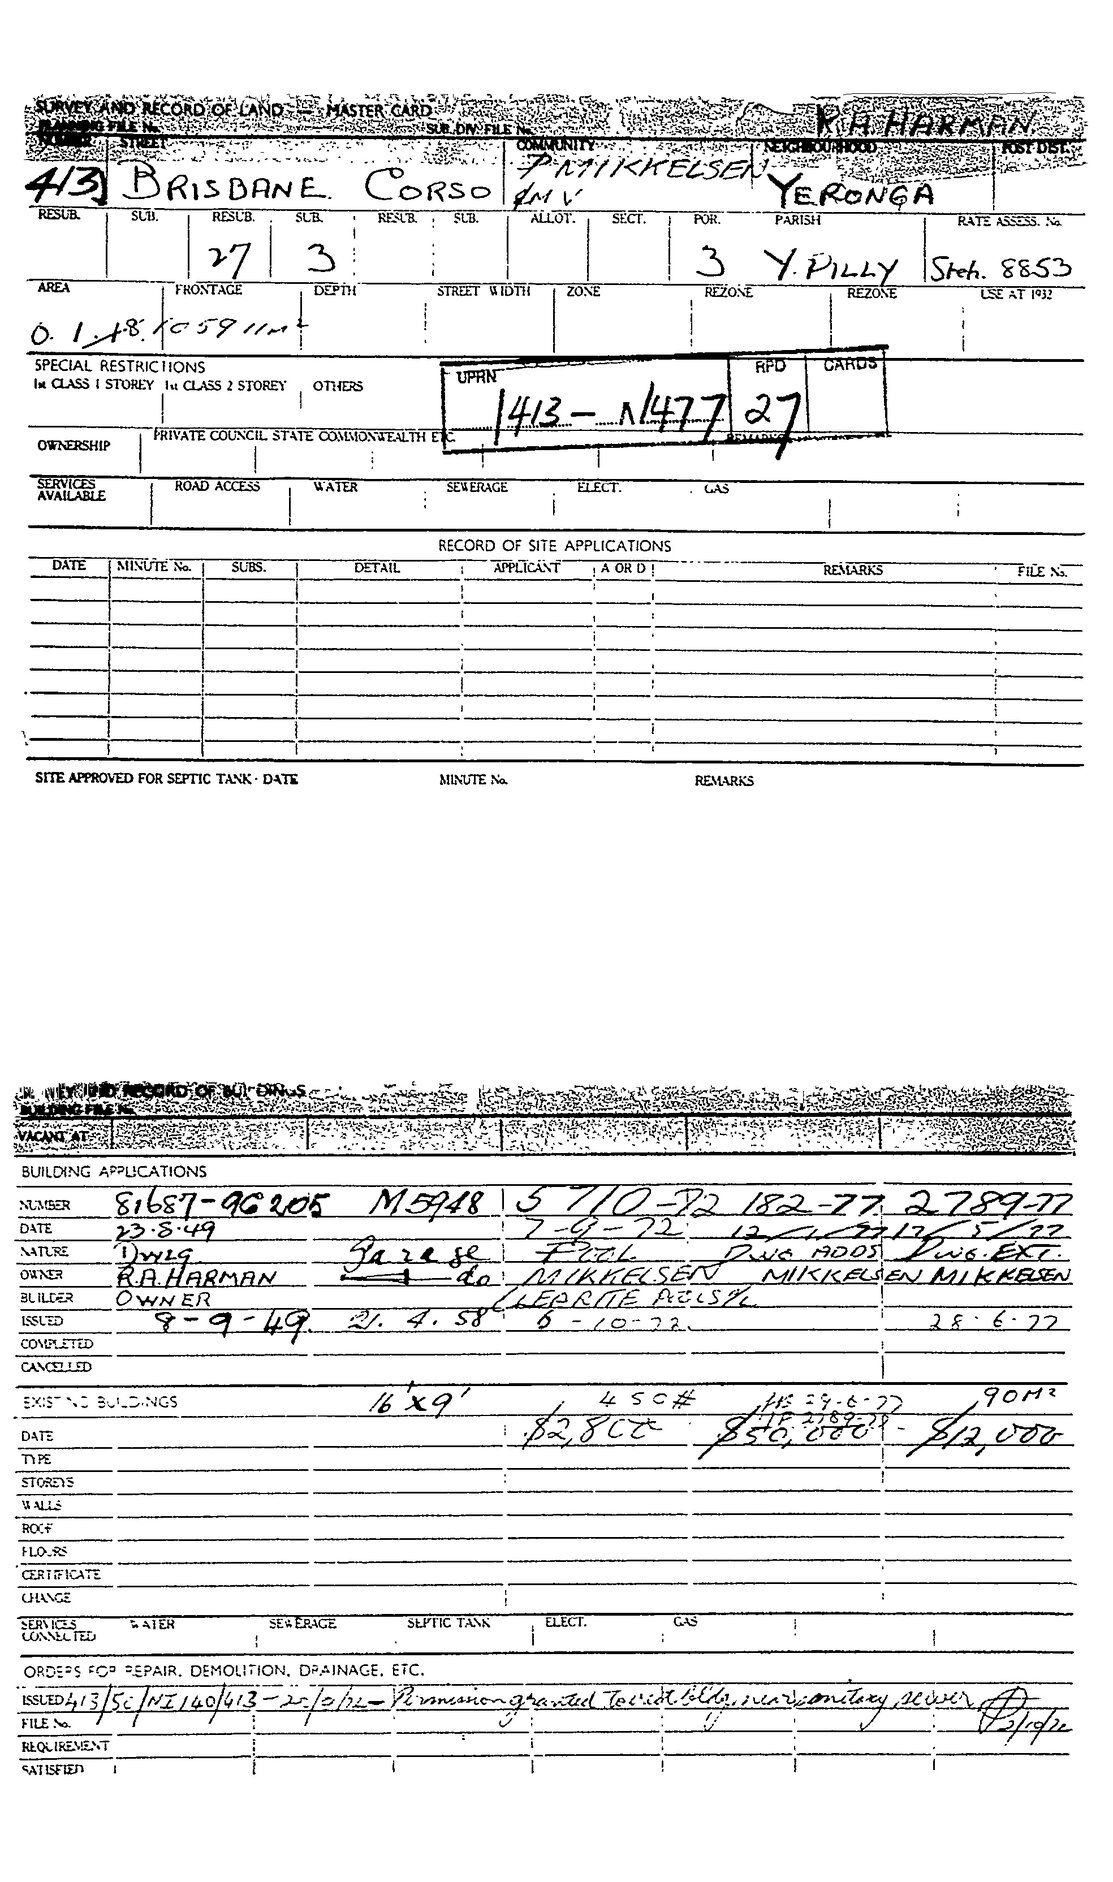 SURVEY AND RECORD OF LAND — MASTER CARD
PLANNING FILE No. SUB. DIV. FILE No. R.A. HARMAN
NUMBER STREET COMMUNITY NEIGHBOURHOOD POST DIST.
413 BRISBANE CORSO P MIKKELSEN & M V YERONGA
RESUB. SUB. RESUB. SUB. RESUB. SUB. ALLOT. SECT. POR. PARISH RATE ASSESS. No.
27 3 3 Y. PILLY 8853
AREA FRONTAGE DEPTH STREET WIDTH ZONE REZONE REZONE USE AT 1932
0. 1. 18. 1059
SPECIAL RESTRICTIONS
1st CLASS 1 STOREY 1st CLASS 2 STOREY OTHERS
UPRN RPD CARDS
1413 - N1477 27
OWNERSHIP PRIVATE COUNCIL STATE COMMONWEALTH ETC. REMARKS
SERVICES AVAILABLE ROAD ACCESS WATER SEWERAGE ELECT. GAS
RECORD OF SITE APPLICATIONS
DATE MINUTE No. SUBS. DETAIL APPLICANT A OR D REMARKS FILE No.
SITE APPROVED FOR SEPTIC TANK - DATE MINUTE No. REMARKS
SURVEY AND RECORD OF BUILDINGS
BUILDING FILE No.
VACANT AT
BUILDING APPLICATIONS
NUMBER 81687-96205 M5948 5710-72 182-77 2789-77
DATE 23.8.49 7-9-72 12/1/77 17/5/77
NATURE Dwlg Garage POOL DWG ADDS DWG. EXT.
OWNER R.A. HARMAN do MIKKELSEN MIKKELSEN MIKKELSEN
BUILDER OWNER
ISSUED 8-9-49. 21.4.58 6-10-72. 28.6.77
COMPLETED
CANCELLED
EXISTING BUILDINGS 16'x9' 450# 90M²
DATE $2,800 $50,000 - $12,000
TYPE
STOREYS
WALLS
ROOF
FLOORS
CERTIFICATE
CHANGE
SERVICES CONNECTED WATER SEWERAGE SEPTIC TANK ELECT. GAS
ORDERS FOR REPAIR, DEMOLITION, DRAINAGE, ETC.
ISSUED Permission granted to erect bldg. near sanitary sewer
FILE No.
REQUIREMENT
SATISFIED